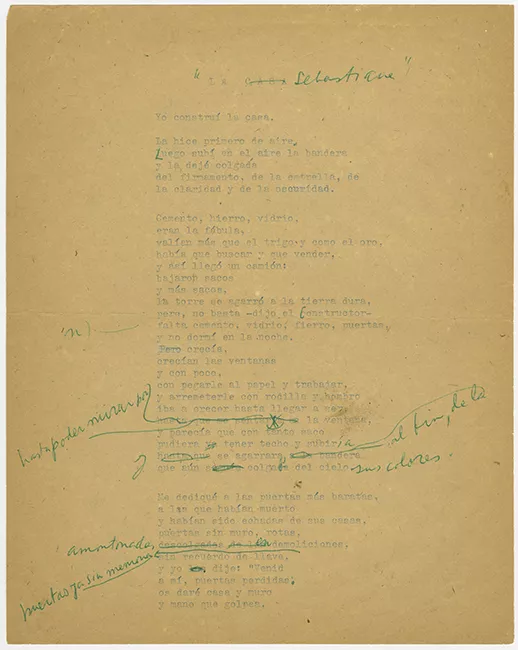 "La Casa Sebastiana"
Yo construí la casa.
La hice primero de aire.
Luego subí en el aire la bandera
y la dejé colgada
del firmamento, de la estrella, de
la claridad y de la oscuridad.
Cemento, hierro, vidrio,
eran la fábula,
valían más que el trigo y como el oro,
había que buscar y que vender,
y así llegó un camión:
bajaron sacos
y más sacos,
la torre se agarró a la tierra dura,
pero, no basta -dijo el Constructor-
falta cemento, vidrio, fierro, puertas,
y no dormí en la noche.
Pero crecía,
crecían las ventanas
y con poco,
con pegarle al papel y trabajar,
y arremeterle con rodilla y hombro
iba a crecer hasta llegar a ser,
hasta poder mirar por
la ventana,
y parecía que con tanto saco
pudiera tener techo y subiría
y se agarrara, al fin, de la bandera
que aún colgaba del cielo sus colores.
Me dediqué a las puertas más baratas,
a las que habían muerto
y habían sido echadas de sus casas,
puertas sin muro, rotas,
amontonadas en demoliciones,
puertas ya sin memoria
sin recuerdo de llave,
y yo dije: "Venid
a mí, puertas perdidas,
os daré casa y muro
y mano que golpea.